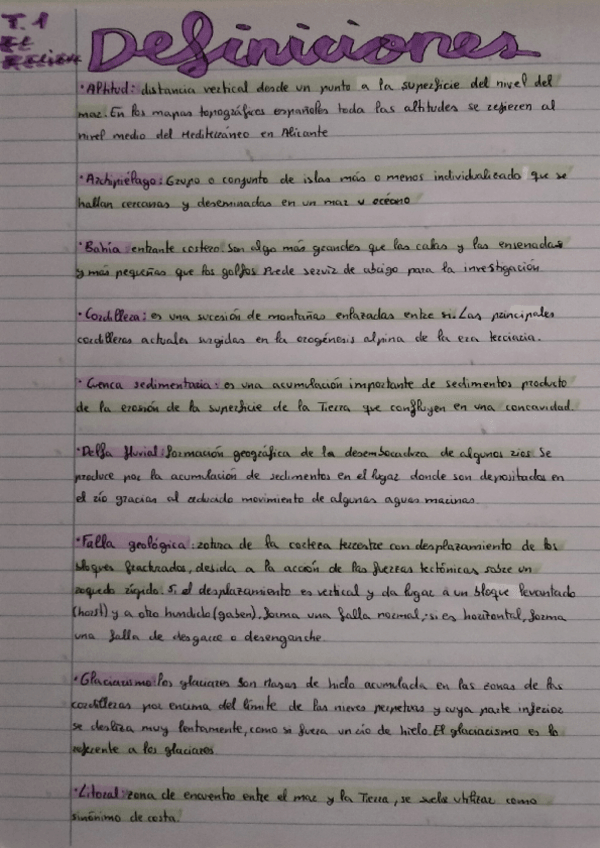 T.1
EL
RELIEVE
Definiciones
· Altitud: distancia vertical desde un punto a la superficie del nivel del
mar. En los mapas topográficos españoles toda las altitudes se refieren al
nivel medio del Mediterráneo en Alicante
· Archipiélago: Grupo o conjunto de islas más o menos individualizado que se
hallan cercanas y deseminadas en un mar u océano
· Bahía: entrante costero. Son algo más grandes que las calas y las ensenadas
y más pequeñas que los golfos. Puede servir de abrigo para la investigación
· Cordillera: es una sucesión de montañas enlazadas entre si. Las principales
cordilleras actuales surgidas en la orogénesis alpina de la era terciaria.
· Cuenca sedimentaria: es una acumulación importante de sedimentos producto
de la erosión de la superficie de la Tierra que confluyen en una concavidad.
· Delta fluvial: formación geográfica de la desembocadura de algunos ríos. Se
produce por la acumulación de sedimentos en el lugar donde son depositados en
el río gracias al reducido movimiento de algunas aguas marinas.
· Falla geológica: rotura de la corteza terrestre con desplazamiento de los
bloques fracturados, debida a la acción de las fuerzas tectónicas sobre un
roquedo rígido. Si el desplazamiento es vertical y da lugar a un bloque levantado
(horst) y a otro hundido (gaben), forma una falla normal; si es horizontal, forma
una falla de desgarre o desenganche.
· Glaciarismo: los glaciares son masas de hielo acumulada en las zonas de las
cordilleras por encima del límite de las nieves perpetuas y cuya parte inferior
se desliza muy lentamente, como si fuera un río de hielo. El glaciarismo es lo
referente a los glaciares.
· Litoral: zona de encuentro entre el mar y la Tierra, se suele utilizar como
sinónimo de costa.